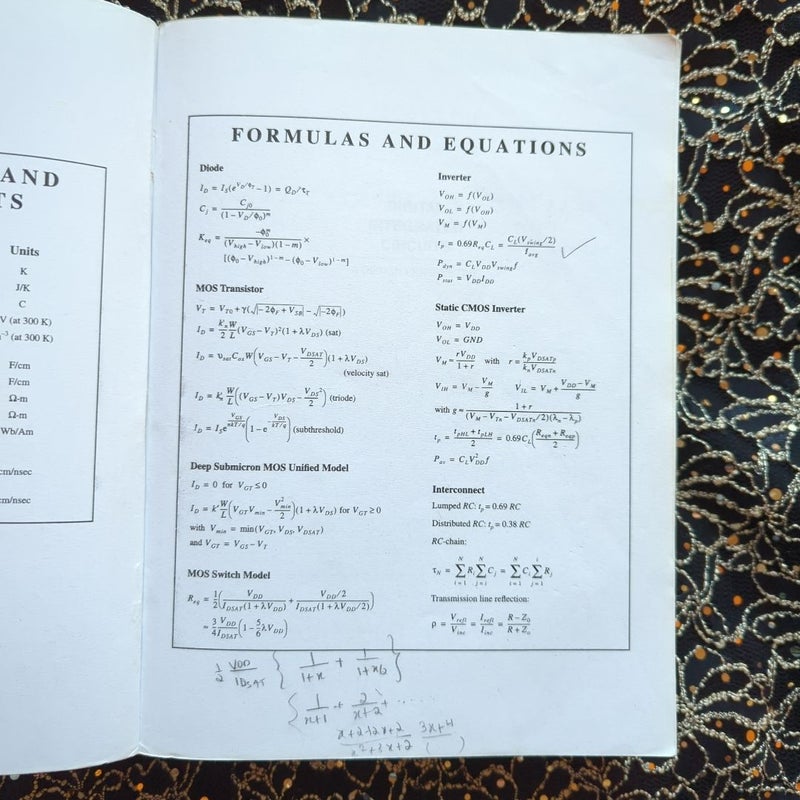 AND
TS
Units
K
J/K
C
V (at 300 K)
(at 300 K)
F/cm
F/cm
Ω-m
Ω-m
Wb/Am
cm/nsec
cm/nsec
FORMULAS AND EQUATIONS
Diode
I_D = I_S(e^{V_D/ϕ_T} − 1) = Q_D/τ_T
C_j = C_{j0} / (1 − V_D/ϕ_0)^m
K_eq = −ϕ_0^m / ((V_high − V_low)(1 − m)) ×
[(ϕ_0 − V_high)^{1−m} − (ϕ_0 − V_low)^{1−m}]
MOS Transistor
V_T = V_{T0} + γ(√|−2ϕ_F + V_SB| − √|−2ϕ_F|)
I_D = (k'_n/2)(W/L)(V_GS − V_T)^2(1 + λV_DS) (sat)
I_D = υ_sat C_ox W(V_GS − V_T − V_DSAT/2)(1 + λV_DS)
(velocity sat)
I_D = k'_n (W/L)((V_GS − V_T)V_DS − V_DS^2/2) (triode)
I_D = I_S e^{V_GS/(nkT/q)}(1 − e^{−V_DS/(kT/q)}) (subthreshold)
Deep Submicron MOS Unified Model
I_D = 0 for V_GT ≤ 0
I_D = k'(W/L)(V_GT V_min − V_min^2/2)(1 + λV_DS) for V_GT ≥ 0
with V_min = min(V_GT, V_DS, V_DSAT)
and V_GT = V_GS − V_T
MOS Switch Model
R_eq = (1/2)(V_DD/(I_DSAT(1 + λV_DD)) + (V_DD/2)/(I_DSAT(1 + λV_DD/2)))
≈ (3/4)(V_DD/I_DSAT)(1 − (5/6)λV_DD)
Inverter
V_OH = f(V_OL)
V_OL = f(V_OH)
V_M = f(V_M)
t_p = 0.69R_eq C_L = C_L(V_swing/2) / I_avg
P_dyn = C_L V_DD V_swing f
P_stat = V_DD I_DD
Static CMOS Inverter
V_OH = V_DD
V_OL = GND
V_M ≈ rV_DD/(1 + r) with r = k_p V_DSATp / (k_n V_DSATn)
V_IH = V_M − V_M/g V_IL = V_M + (V_DD − V_M)/g
with g ≈ (1 + r) / ((V_M − V_Tn − V_DSATn/2)(λ_n − λ_p))
t_p = (t_pHL + t_pLH)/2 = 0.69C_L((R_eqn + R_eqp)/2)
P_av = C_L V_DD^2 f
Interconnect
Lumped RC: t_p = 0.69 RC
Distributed RC: t_p = 0.38 RC
RC-chain:
τ_N = ∑_{i=1}^{N} R_i ∑_{j=i}^{N} C_j = ∑_{i=1}^{N} C_i ∑_{j=1}^{i} R_j
Transmission line reflection:
ρ = V_refl/V_inc = I_refl/I_inc = (R − Z_0)/(R + Z_0)
1/2 VDD/IDSAT { 1/(1+x) + 1/(1+x/2) }
{ 1/(x+1) + 2/(x+2) + ....
(x+2+2x+2)/(x²+3x+2) (3x+4)/( )